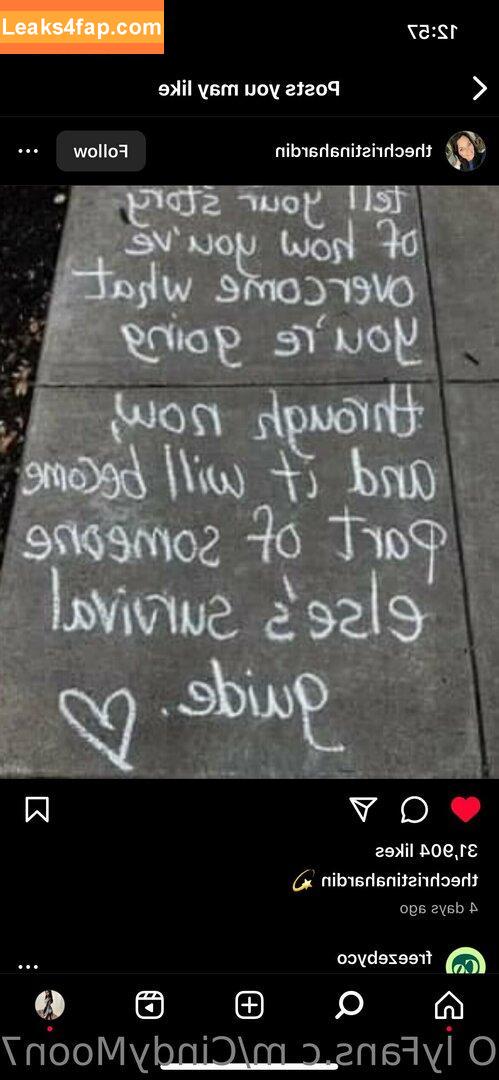 Leaks4fap.com
12:57
Posts you may like
thechristinahardin
Follow
tell your story
of how you've
overcome what
you're going
through now,
and it will become
part of someone
else's survival
guide.
31,904 likes
thechristinahardin
4 days ago
freezebyco
Co
O lyFans.c m/CindyMoon7